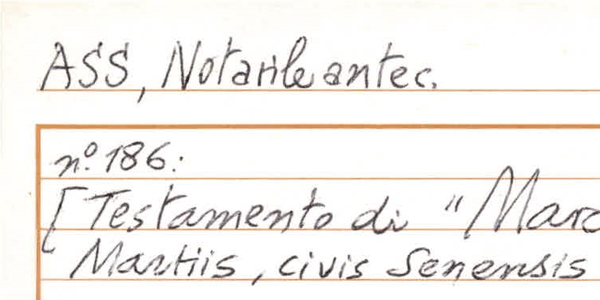 ASS, Notarile antec.
nº 186:
[Testamento di "Marc
Martiis, civis Senensis